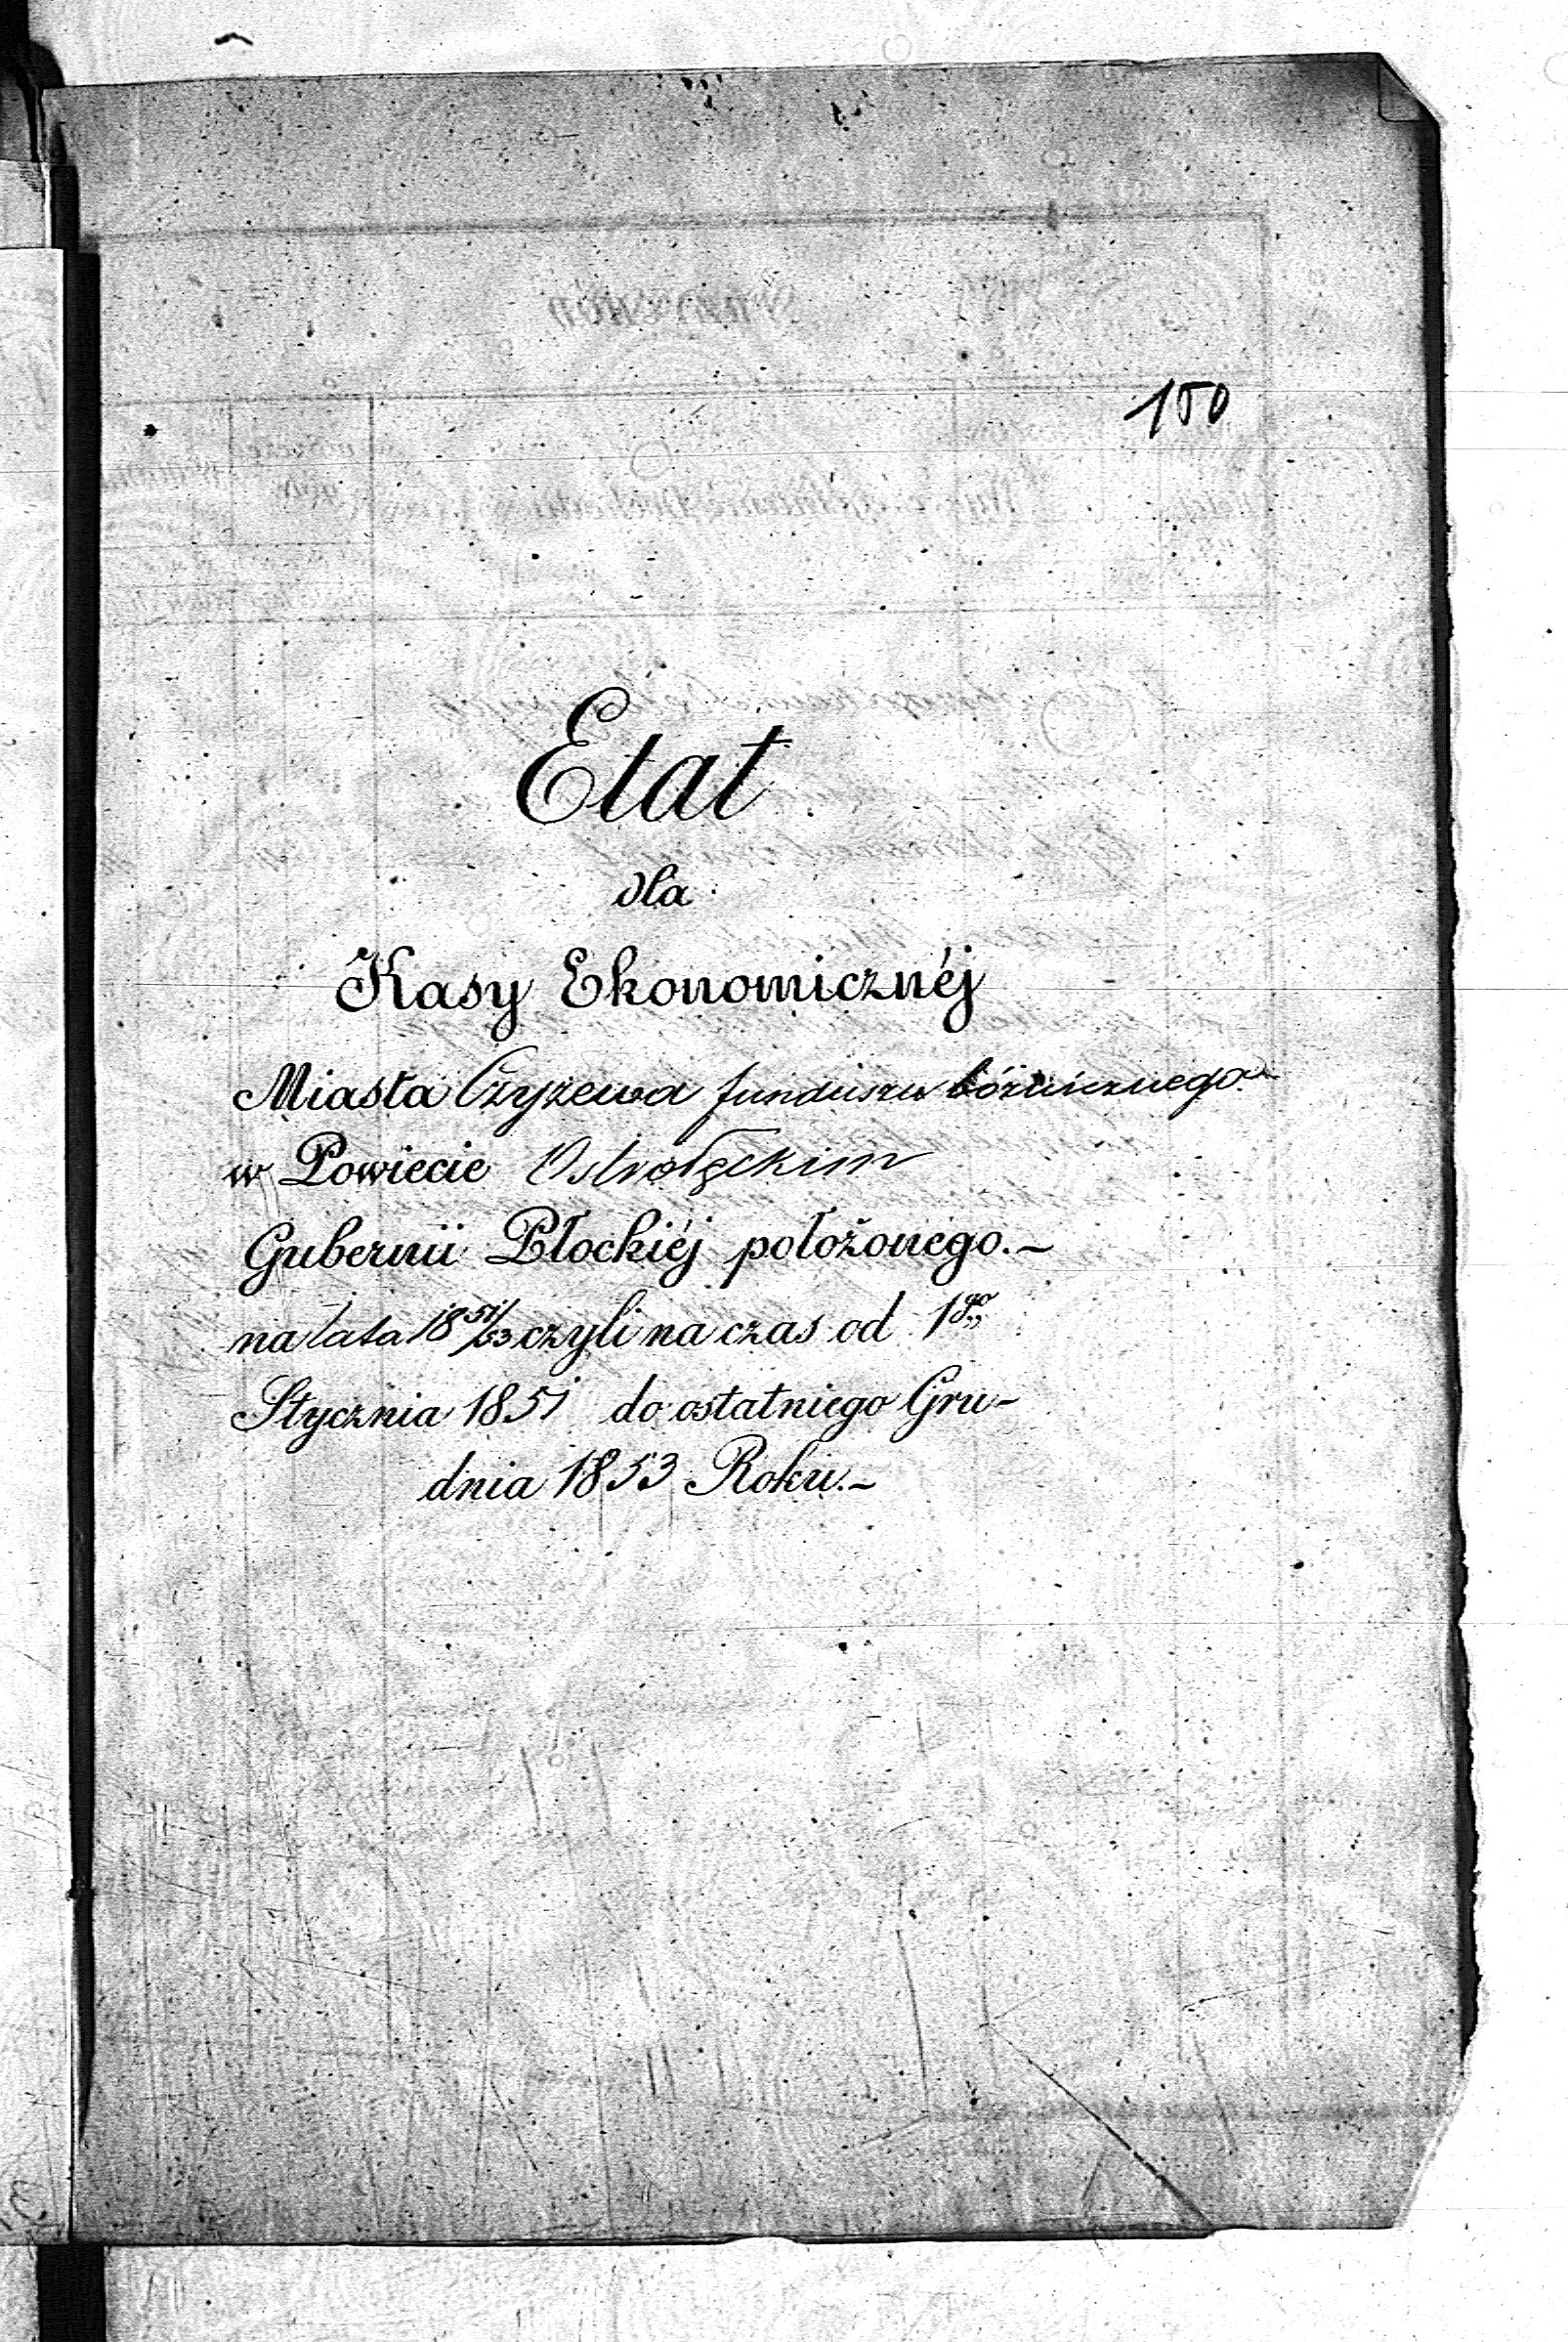 150
Etat
dla
Kasy Ekonomicznéj
Miasta Czyżewa funduszu bóżnicznego.
w Powiecie Ostrołęckim
Gubernii Płockiéj położonego.~
na lata 18 51/53 czyli na czas od 1go
Stycznia 1851 do ostatniego Gru-
dnia 1853 Roku.~